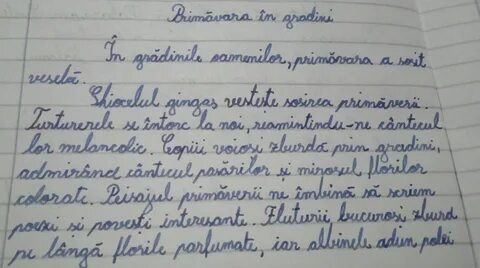 Primăvara în gradini
În grădinile oamenilor, primăvara a sosit
veselă.
Ghiocelul gingaș vesteste sosirea primăverii.
Turturerele se întorc la noi, reamintindu-ne cântecul
lor melancolic. Copiii voiosi zburdă prin gradini,
admirând cântecul pasărilor și mirosul florilor
colorate. Peisajul primăverii ne îmbină să scriem
poezi si povesti interesante. Fluturii bucurosi zburd
pe lângă florile parfumate, iar albinele adun polei